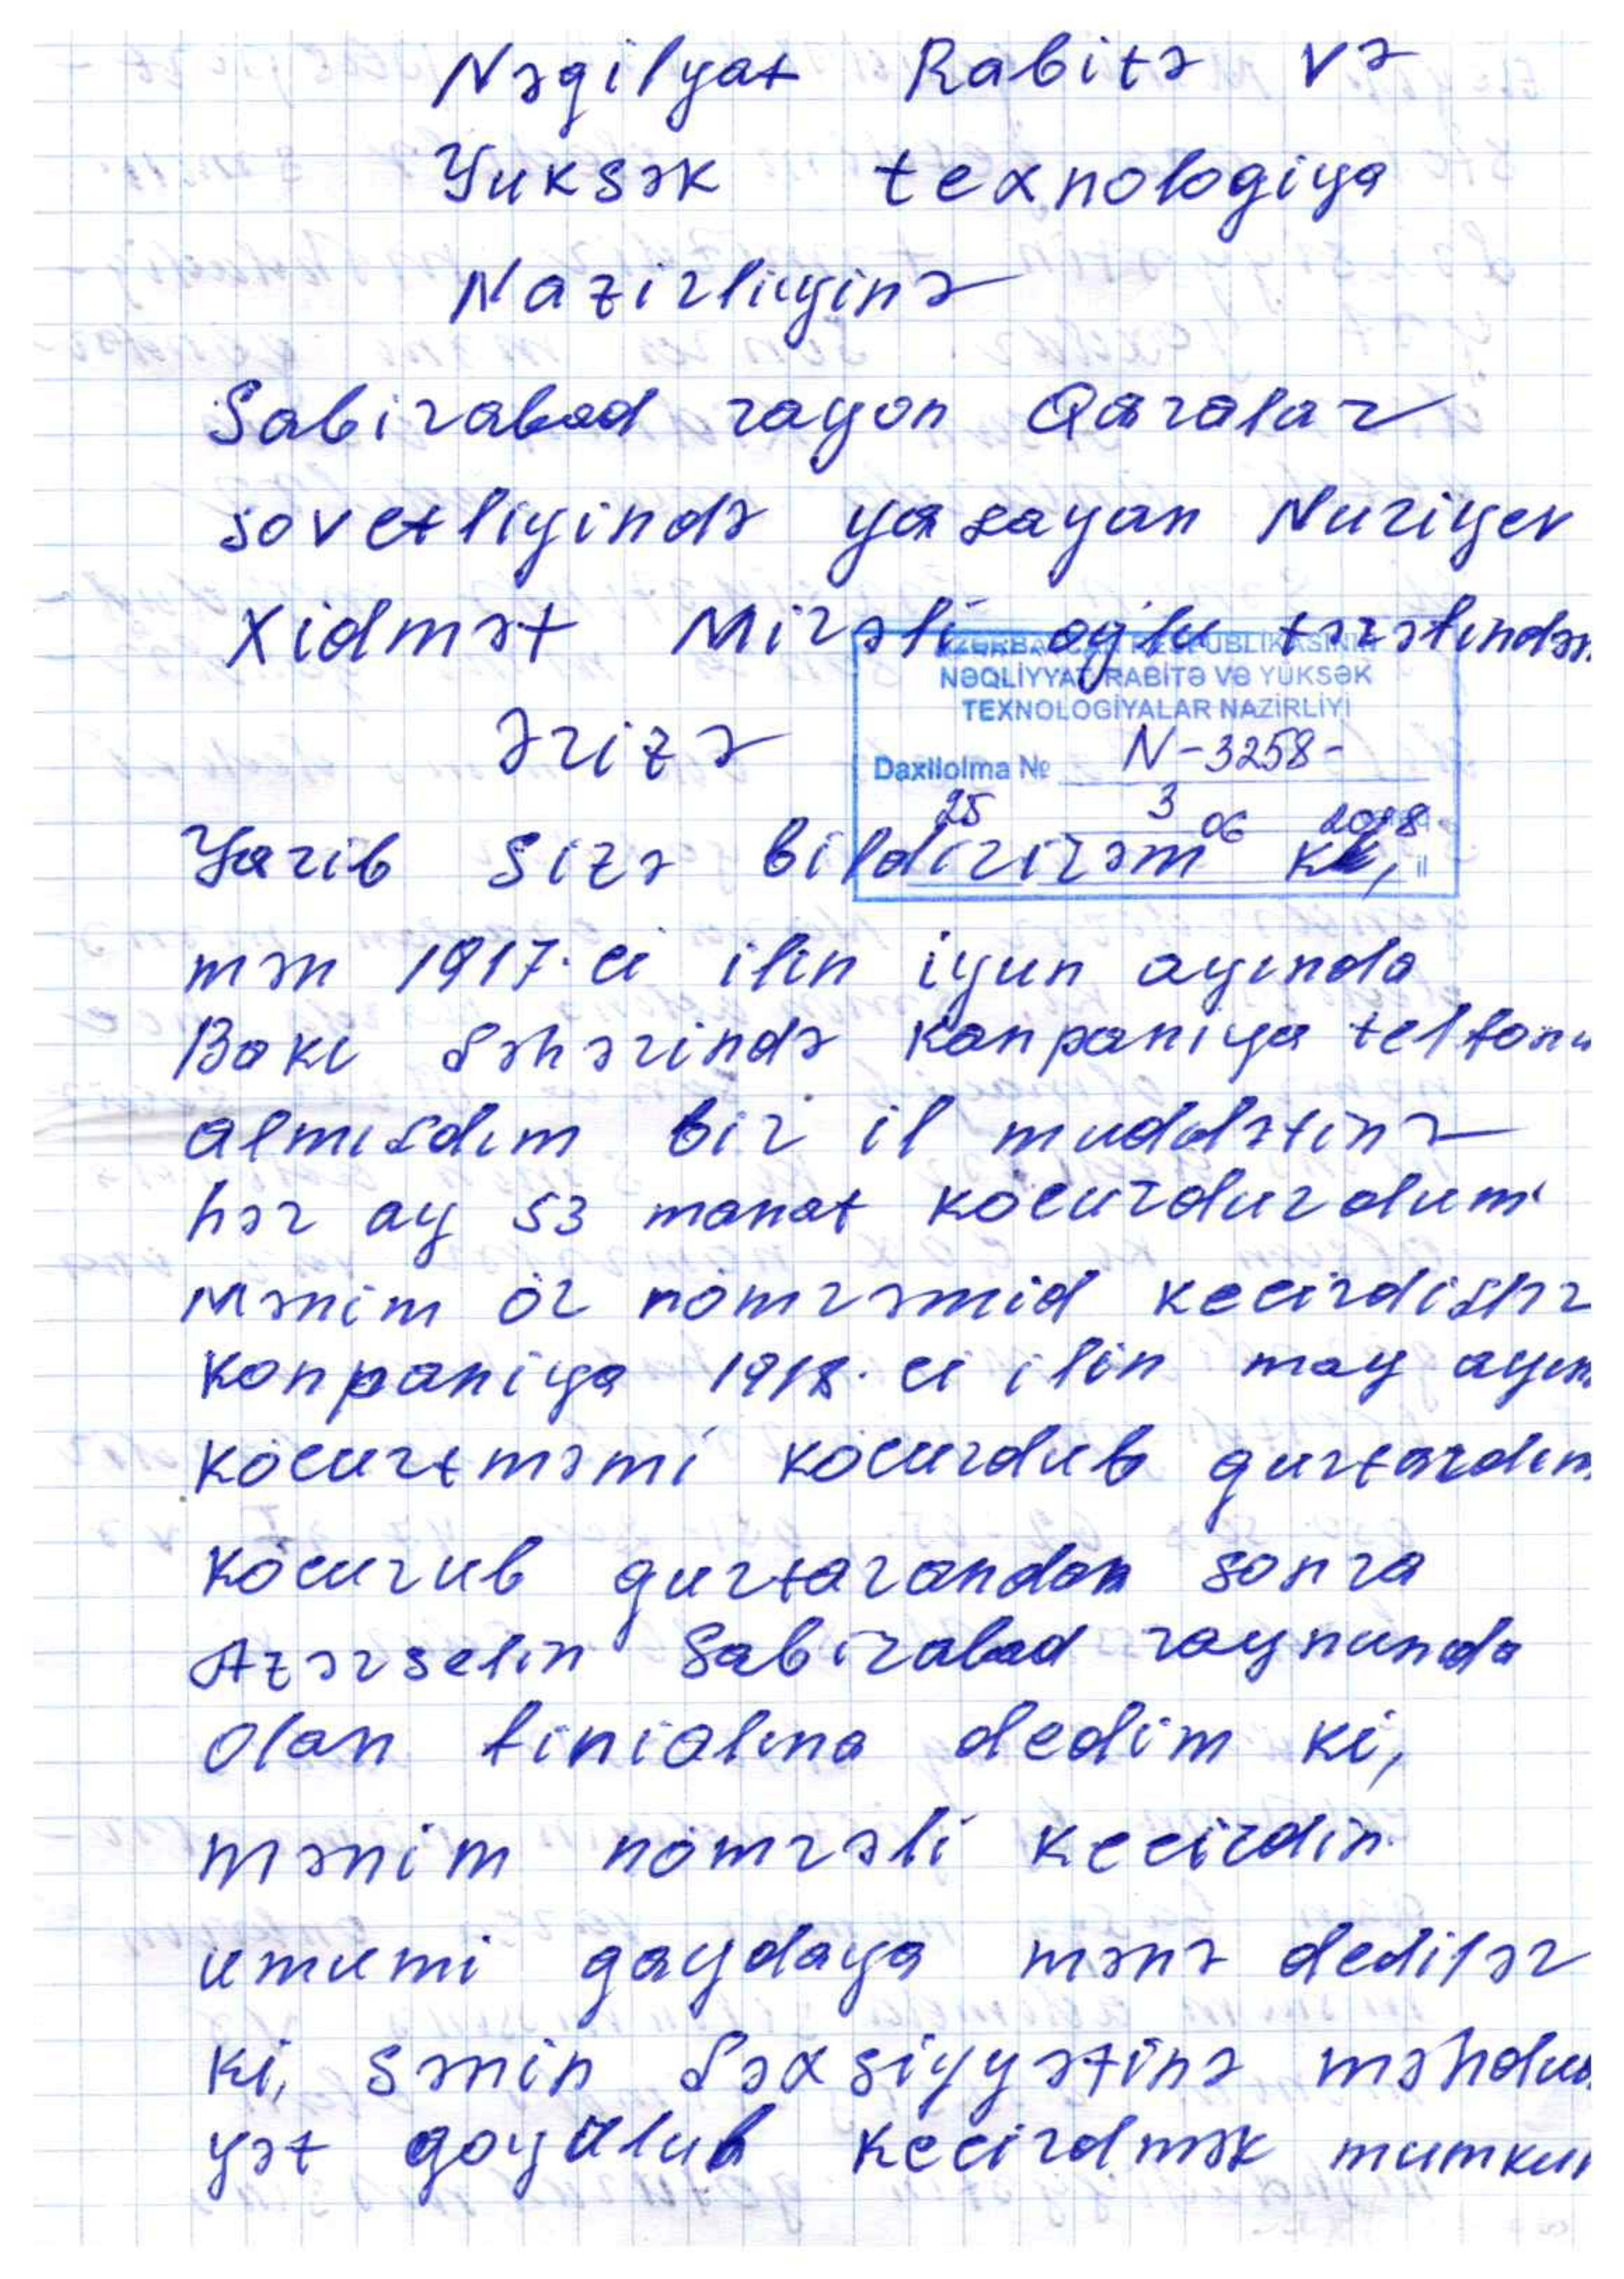 Nəgilyat Rabitə və
Yuksək texnologiya
Nazirliyinə
Sabirabad rayon Qaralar
sovetliyində yasayan Nuriyev
Xidmət Mirəli oglu tərəfindən
AZƏRBAYCAN RESPUBLİKASININ
NƏQLİYYAT RABİTƏ VƏ YÜKSƏK
TEXNOLOGİYALAR NAZİRLİYİ
Ərizə
Daxilolma № N-3258-3
25 06 2018 il
Yazib sizə bildirirəm ki,
mən 1917-ci ilin iyun ayında
Bakı şəhərində kanpaniya telfonu
almışdım bir il muddətinə
hər ay 53 manat köcurdurdum
Mənim öz nömrəmid kecirdişlər
konpaniya 1918-ci ilin may ayın
köcurtməmi köcurdub gurtardım
köcurub gurtarandan sonra
Azərselin Sabirabad raynunda
olan finialına dedim ki,
mənim nömrəli kecirdin
umumi gaydaya mənə dedilər
ki, sənin şəxsiyyətinə məhdu
yət goyulub kecirdmək mumkun